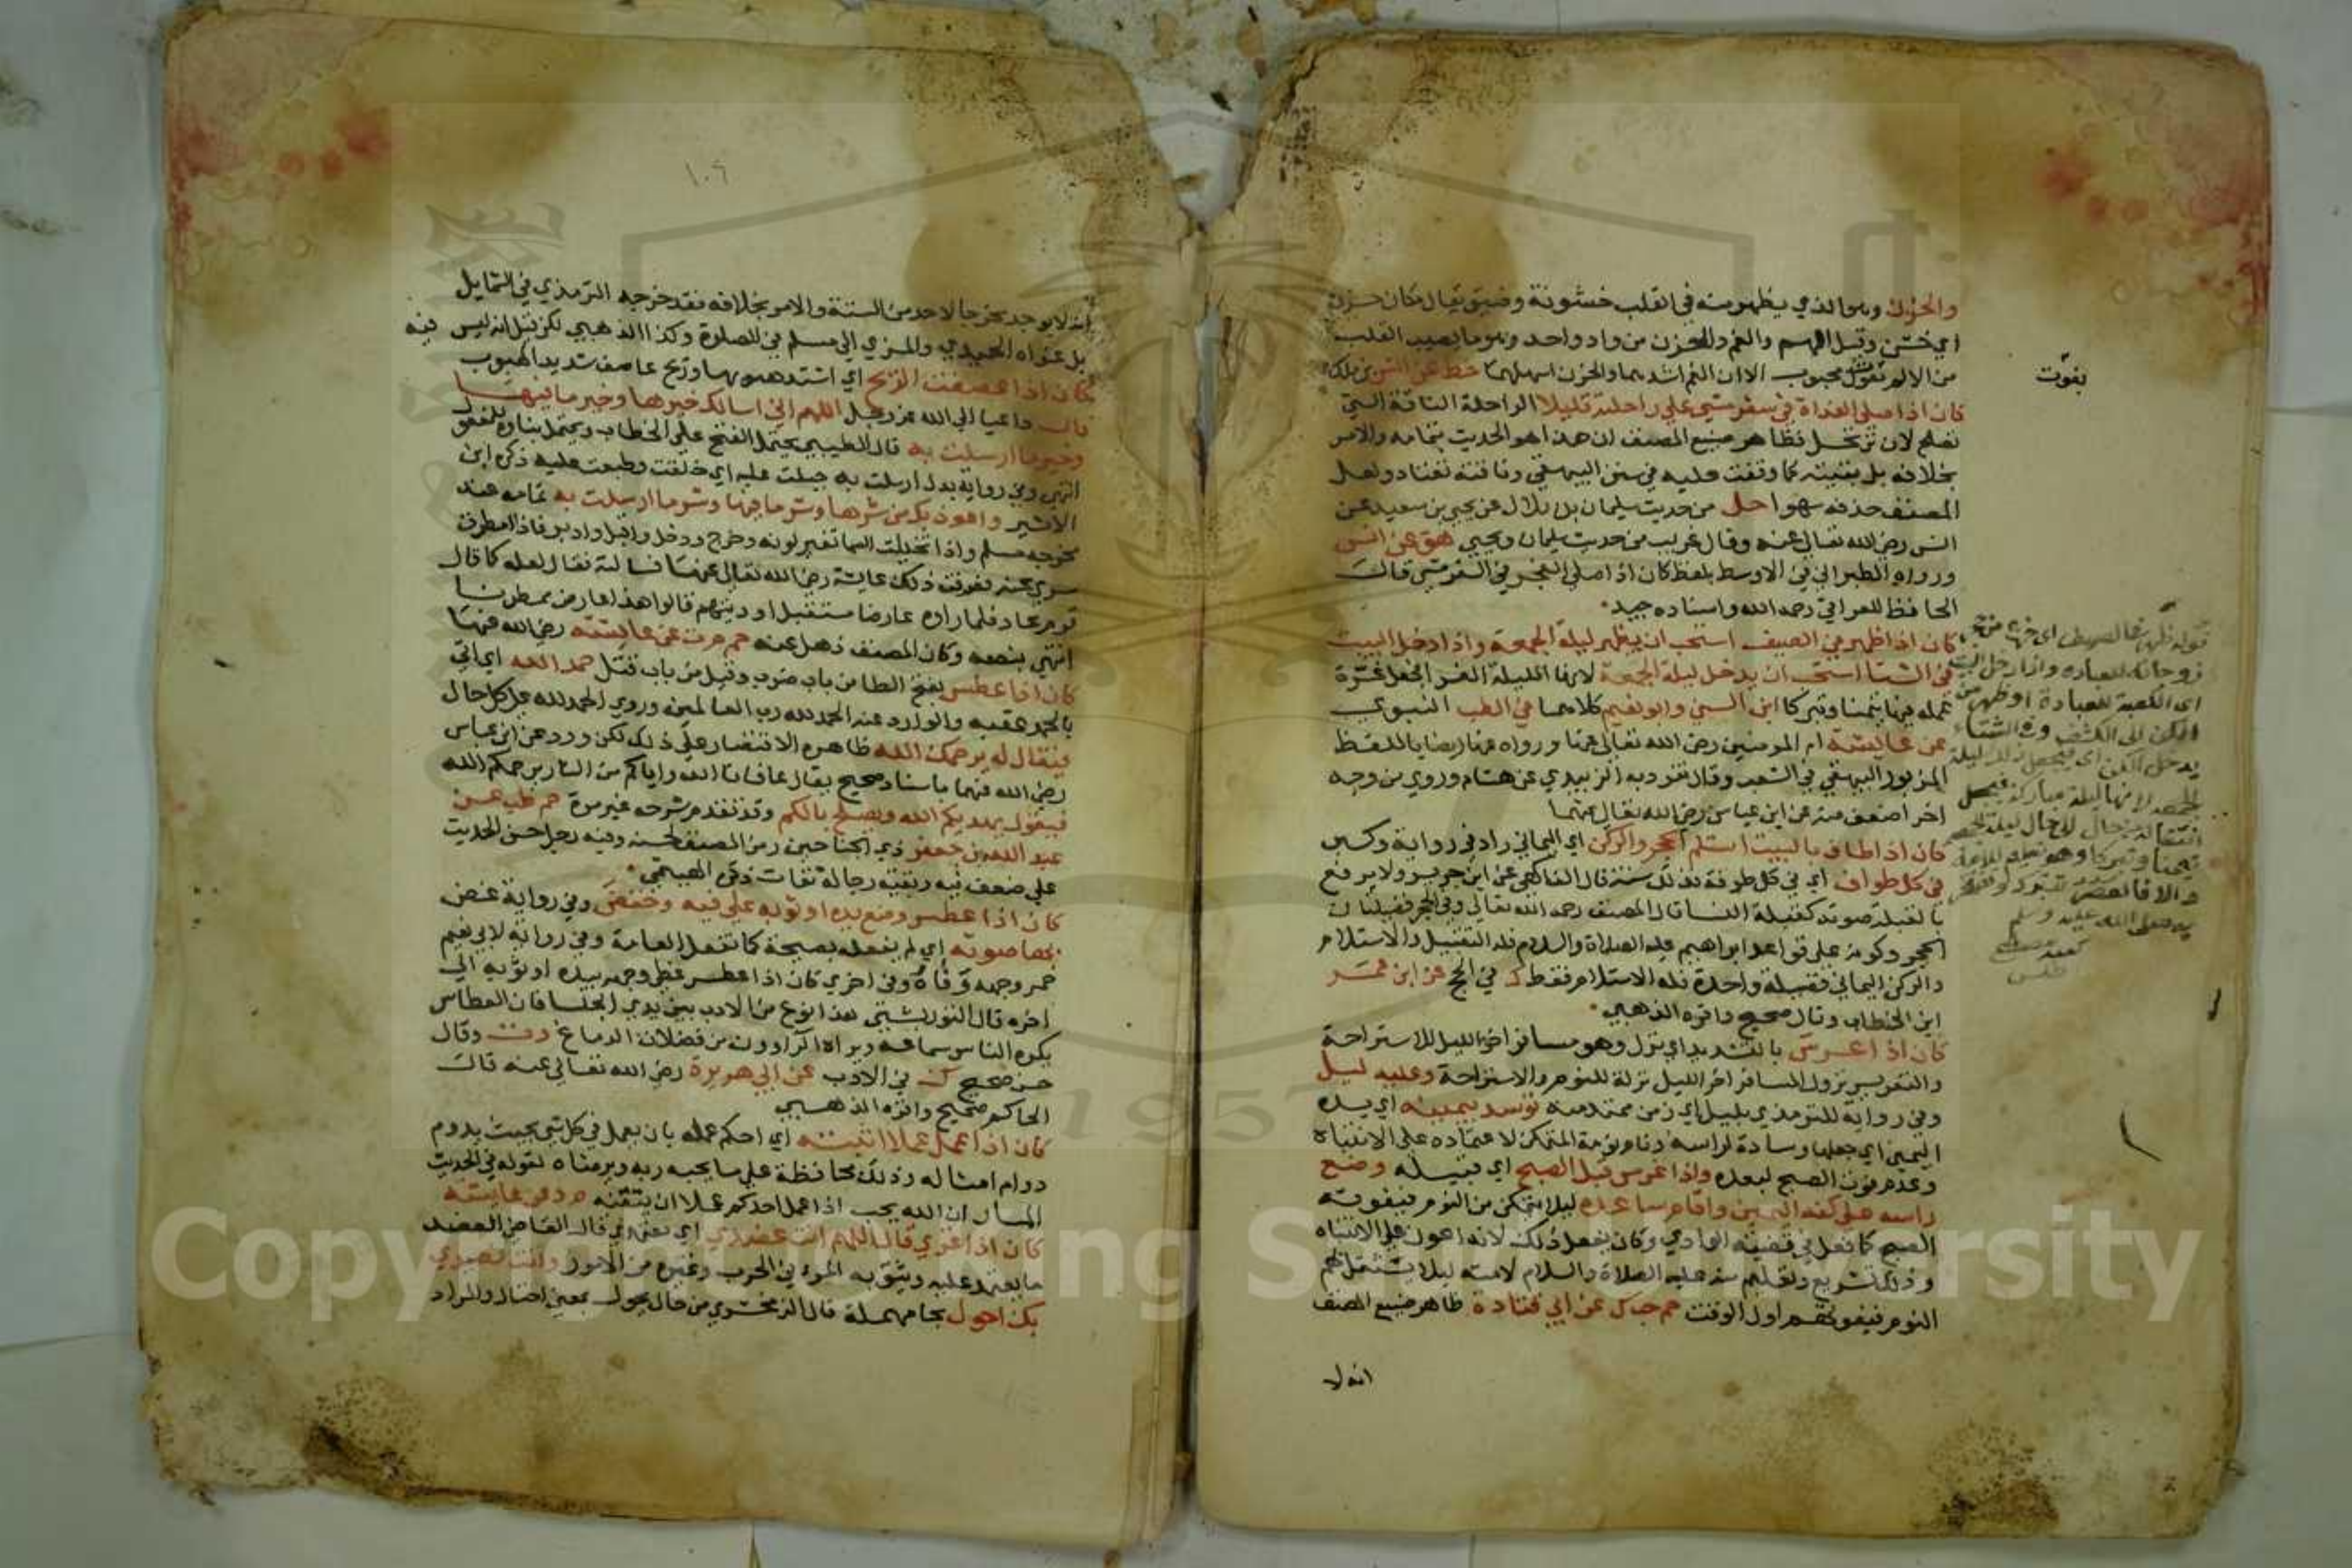 والحزن وهو الذي يظهر منه في القلب خشونة وضيق يقال مكان حزن
اي خشن وقيل الهم والغم والحزن من واد واحد وهو ما يصيب القلب
من الالم بفوت محبوب الا ان الغم اشدهما والحزن اسهلهما خط عن انس بن ملك
بفوت
كان اذا صلى الغداة في سفر مشي علي راحلته قليلا الراحلة الناقة التي
تصلح لان ترتحل فظاهر صنيع المصنف ان هذا هو الحديث بتمامه والامر
بخلافه بل بقيته كما وقفت عليه في سنن البيهقي وناقته تقتاد ولعل
المصنف حذفه سهوا حل من حديث سليمان بن بلال عن يحيي بن سعيد عن
انس رضي الله تعالى عنه وقال غريب من حديث سليمان ويحيي هق عن انس
ورواه الطبراني في الاوسط بلفظ كان اذا صلى الفجر في السفر مشي قال
الحافظ العراقي رحمه الله واسناده جيد
كان اذا ظهر في الصيف استحب ان يظهر ليلة الجمعة واذا دخل البيت
في الشتا استحب ان يدخل ليلة الجمعة لانها الليلة الغرا فجعل غرة
عمله فيها تيمنا وتبركا ابن السني وابو نعيم كلاهما في الطب النبوي
عن عايشة ام المومنين رضي الله تعالى عنها ورواه عنها ايضا باللفظ
المزبور البيهقي في الشعب وقال تفرد به الزبيدي عن هشام وروي من وجه
اخر اضعف منه عن ابن عباس رضي الله تعالى عنهما
كان اذا طاف بالبيت استلم الحجر والركن اي اليماني زاد في رواية وكبر
في كل طواف اي في كل طوفة فذلك سنة قال الفاكهي عن ابن جرير ولا يرفع
بالقبلة صوته كقبلة النسا قال المصنف رحمه الله تعالى وفي الحجر فضيلتان
الحجر وكونه على قواعد ابراهيم عليه الصلاة والسلام فله التقبيل والاستلام
والركن اليماني فضيلة واحدة فله الاستلام فقط ك في الحج عن ابن عمر
ابن الخطاب وقال صحيح واقره الذهبي
كان اذا عرس بالتشديد اي نزل وهو مسافر اخر الليل للاستراحة
والتعريس نزول المسافر اخر الليل نزلة للنوم والاستراحة وعليه ليل
وفي رواية للترمذي بليل اي زمن ممتد منه توسد يمينه اي يده
اليمين اي جعلها وسادة لراسه ونام نومة المتمكن لاعتماده على الانتباه
وعدم فوت الصبح لبعده واذا عرس قبل الصبح اي قبيله وضع
راسه على كفه اليمين واقام ساعده ليلا يتمكن من النوم فيفوته
الصبح كما فعل في قضية الوادي وكان يفعل ذلك لانه اعون على الانتباه
وذلك تشريع وتعليم منه عليه الصلاة والسلام لامته ليلا يثقل بهم
النوم فيفوتهم اول الوقت حم حب ك عن ابي قتادة ظاهر صنيع المصنف
انه لا
١٠٦
انه لا يوجد مخرجا لاحد من الستة والامر بخلافه فقد خرجه الترمذي في الشمايل
بل عزاه الحميدي والمزي الى مسلم في الصلوة وكذا الذهبي لكن قيل انه ليس فيه
كان اذا عصفت الريح اي اشتد هبوبها وريح عاصف شديد الهبوب
قال داعيا الى الله عز وجل اللهم اني اسالك خيرها وخير ما فيها
وخير ما ارسلت به قال الطيبي يحتمل الفتح على الخطاب ويحتمل بناؤه للمفعول
انتهى وفي رواية بدل ارسلت به جبلت عليه اي خلقت وطبعت عليه ذكره ابن
الاثير واعوذ بك من شرها وشر ما فيها وشر ما ارسلت به تمامه عند
مخرجه مسلم واذا تخيلت السما تغير لونه وخرج ودخل واقبل وادبر فاذا مطرت
سري عنه فعرفت ذلك عايشة رضي الله تعالى عنها فسالته فقال لعله كما قال
قوم عاد فلما راوه عارضا مستقبل اوديتهم قالوا هذا عارض ممطرنا
انتهى بنصه وكان المصنف ذهل عنه حم م ت عن عايشة رضي الله عنها
كان اذا عطس بفتح الطا من باب ضرب وقيل من باب قتل حمد الله اي اتي
بالحمد عقبه والوارد عنه الحمد لله رب العالمين وروي الحمد لله على كل حال
فيقال له يرحمك الله ظاهره الاقتصار على ذلك لكن ورد عن ابن عباس
رضي الله عنهما باسناد صحيح يقال عافانا الله واياكم من النار يرحمكم الله
فيقول يهديكم الله ويصلح بالكم وقد تقدم شرحه غير مرة حم طب عن
عبد الله بن جعفر ذي الجناحين رمز المصنف لحسنه وفيه رجل حسن الحديث
على ضعف فيه وبقية رجاله ثقات ذكره الهيثمي
كان اذا عطس وضع يده او ثوبه على فيه وخفض وفي رواية غض
بها صوته اي لم يفعله بصيحة كما تفعل العامة وفي رواية لابي نعيم
خمر وجهه وفاه وفي اخري كان اذا عطس غطى وجهه بيده او ثوبه الى
اخره قال التوربشتي هذا نوع من الادب بين يدي الجلسا فان العطاس
يكره الناس سماعه ويراه الراوون من فضلات الدماغ د ت وقال
حسن صحيح ك في الادب عن ابي هريرة رضي الله تعالى عنه قال
الحاكم صحيح واقره الذهبي
كان اذا عمل عملا اثبته اي احكم عمله بان يعمل في كل شي بحيث يدوم
دوام امثاله وذلك محافظة على ما يحبه ربه ويرضاه لقوله في الحديث
المار ان الله يحب اذا عمل احدكم عملا ان يتقنه م د عن عايشة
كان اذا غزي قال اللهم انت عضدي اي معتمدي قال القاضي العضد
ما يعتمد عليه ويثق به المرء في الحرب وغيره من الامور وانت نصيري
بك احول بحا مهملة قال الزمخشري من حال يحول بمعنى احتال والمراد
Copyright © King Saud University
1957